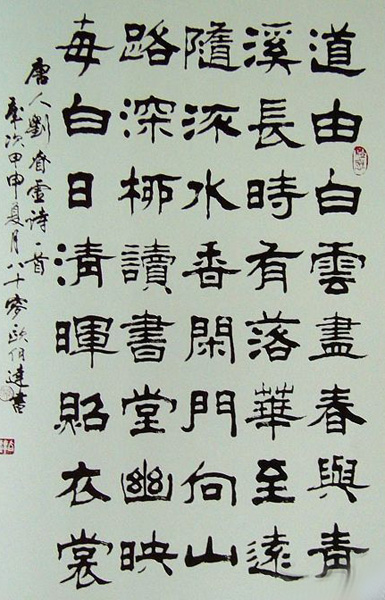 道由白雲盡春與青
溪長時有落華至遠
隨流水香閑門向山
路深柳讀書堂幽映
每白日清暉照衣裳
唐人劉眘虛詩一首
歲次甲申夏月八十歐伯達書